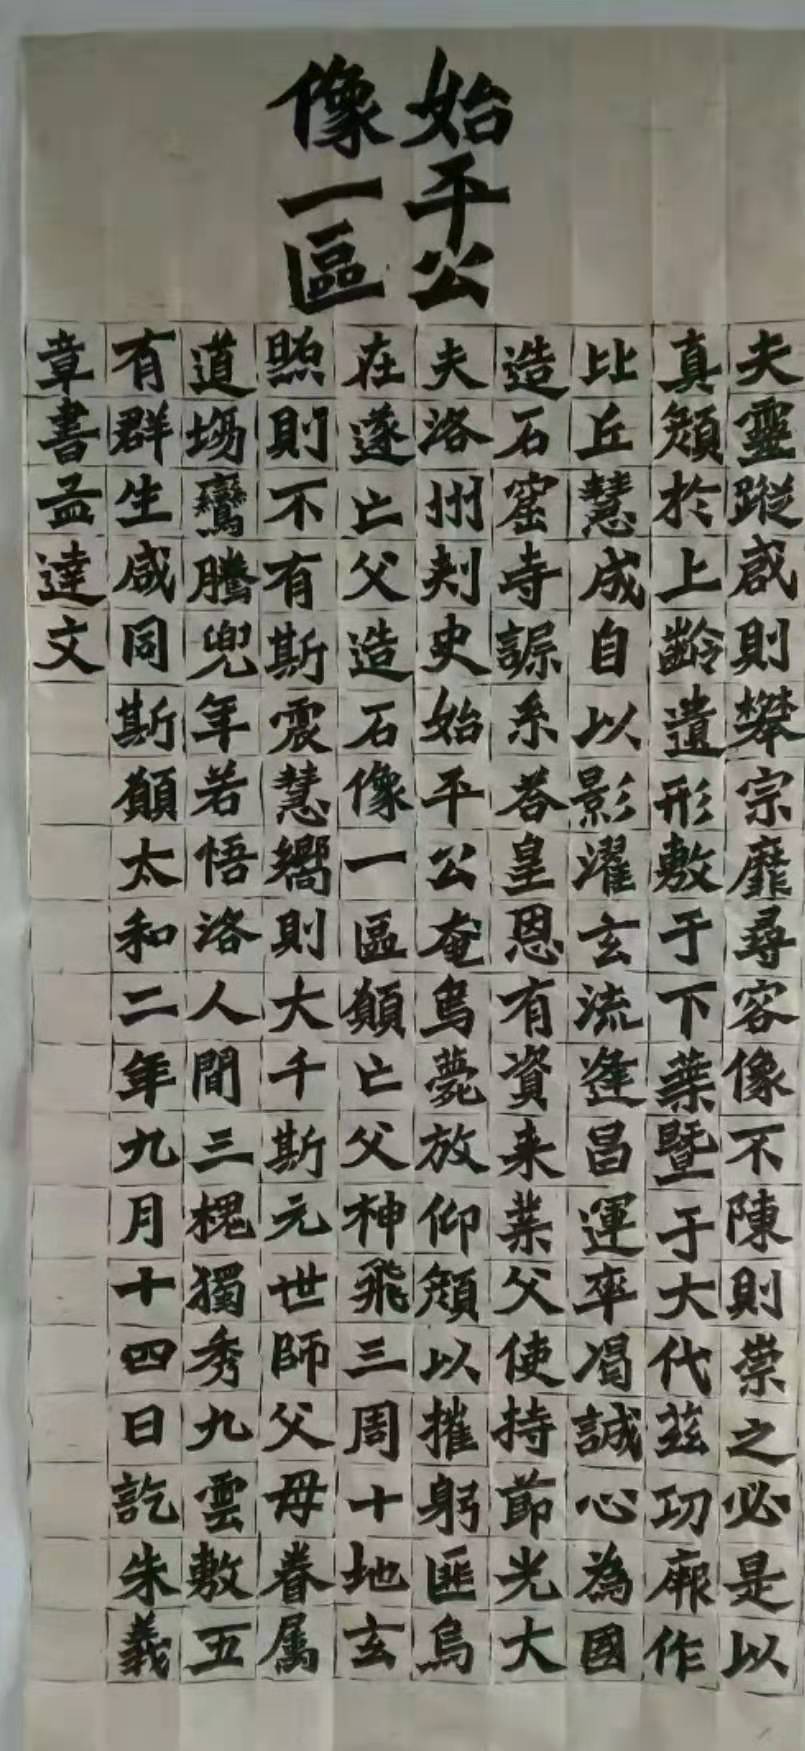 始平公
像一區
夫靈蹤感則攀宗靡尋容像不陳則崇之必是以
真顏於上齡遺形敷于下葉暨于大代茲功厥作
比丘慧成自以影濯玄流逢昌運率渴誠心為國
造石窟寺諕系荅皇恩有資来業父使持節光大
夫洛州刾史始平公奄焉薨放仰顏以摧躬匪烏
在遂亡父造石像一區願亡父神飛三周十地玄
照則不有斯震慧嚮則大千斯元世師父母眷属
道場鸞騰兜年若悟洛人間三槐獨秀九雲敷五
有群生咸同斯願太和二年九月十四日訖朱義
章書孟達文